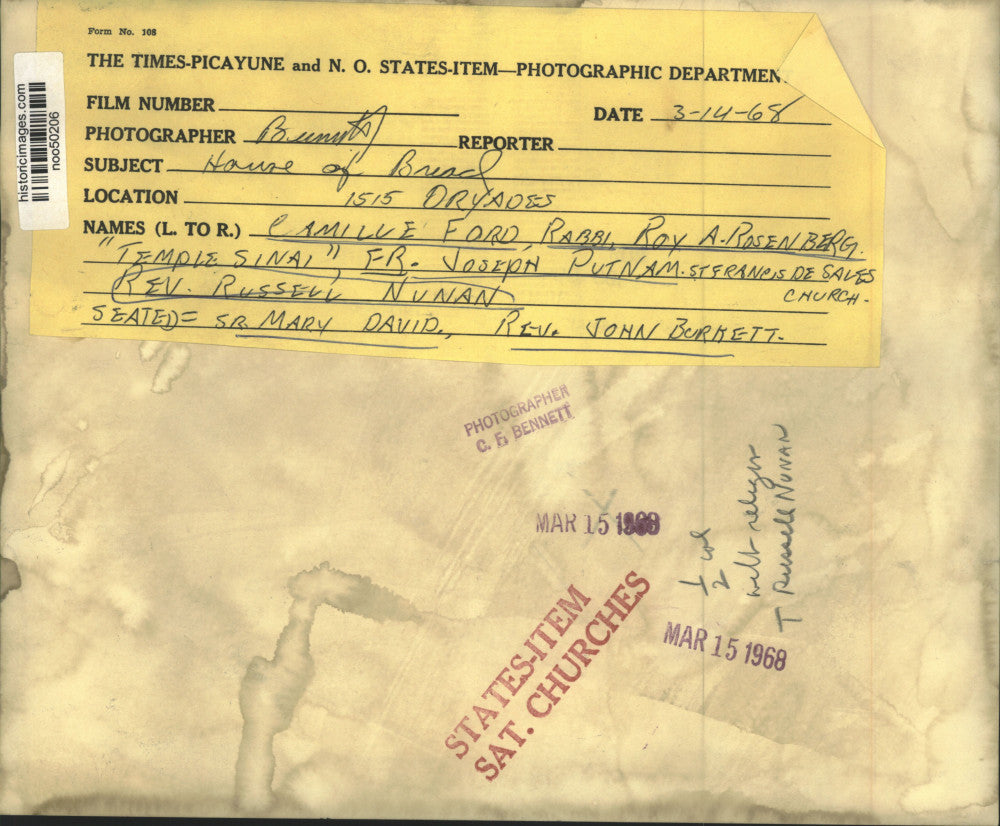 historicimages.com
noo50206
Form No. 108
THE TIMES-PICAYUNE and N. O. STATES-ITEM—PHOTOGRAPHIC DEPARTMEN
FILM NUMBER
DATE 3-14-68
PHOTOGRAPHER Bennett REPORTER
SUBJECT House of Bread
LOCATION 1515 DRYADES
NAMES (L. TO R.) CAMILLE FORD, RABBI, ROY A. ROSENBERG.
"TEMPLE SINAI", FR. JOSEPH PUTNAM. ST FRANCIS DE SALES
CHURCH-
REV. RUSSELL NUNAN
SEATED= SR. MARY DAVID., REV. JOHN BURKETT.
PHOTOGRAPHER
C. F. BENNETT
MAR 15 1968
1/2 col
T Russell NUNAN
MAR 15 1968
STATES-ITEM
SAT. CHURCHES